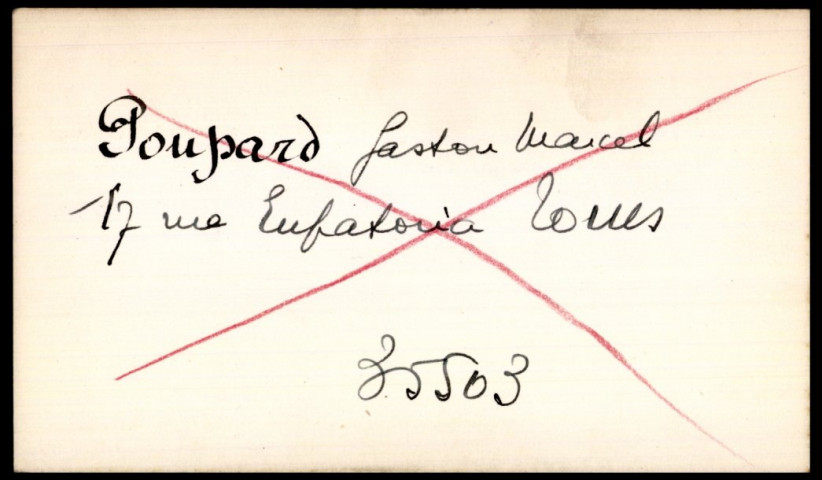 Poupard Gaston Marcel
17 rue Eupatoria Tours
35503